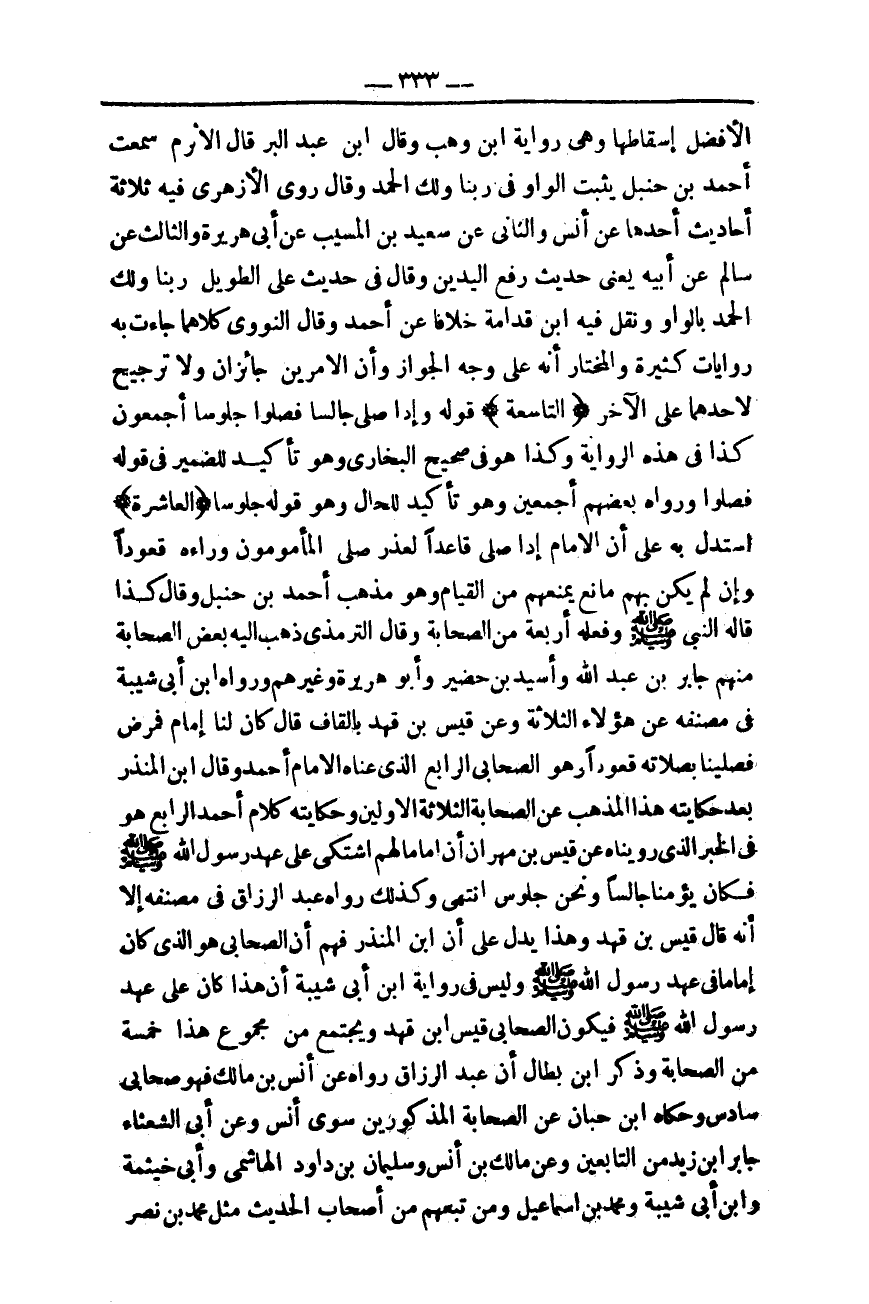 — ٣٣٣ —
الأفضل إسقاطها وهى رواية ابن وهب وقال ابن عبد البر قال الأثرم سمعت
أحمد بن حنبل يثبت الواو فى ربنا ولك الحمد وقال روى الأزهرى فيه ثلاثة
أحاديث أحدها عن أنس والثانى عن سعيد بن المسيب عن أبى هريرة والثالث عن
سالم عن أبيه يعنى حديث رفع اليدين وقال فى حديث على الطويل ربنا ولك
الحمد بالواو ونقل فيه ابن قدامة خلافا عن أحمد وقال النووى كلاهما جاءت به
روايات كثيرة والمختار أنه على وجه الجواز وأن الامرين جائزان ولا ترجيح
لاحدهما على الآخر ﴿ التاسعة ﴾ قوله وإذا صلى جالسا فصلوا جلوسا أجمعون
كذا فى هذه الرواية وكذا هو فى صحيح البخارى وهو تأكيد للضمير فى قوله
فصلوا ورواه بعضهم أجمعين وهو تأكيد للحال وهو قوله جلوسا ﴿العاشرة﴾
استدل به على أن الامام إذا صلى قاعداً لعذر صلى المأمومون وراءه قعوداً
وإن لم يكن بهم مانع يمنعهم من القيام وهو مذهب أحمد بن حنبل وقال كذا
قاله النبى ﷺ وفعله أربعة من الصحابة وقال الترمذى ذهب اليه بعض الصحابة
منهم جابر بن عبد الله وأسيد بن حضير وأبو هريرة وغيرهم ورواه ابن أبى شيبة
فى مصنفه عن هؤلاء الثلاثة وعن قيس بن قهد بالقاف قال كان لنا إمام فمرض
فصلينا بصلاته قعوداً وهو الصحابى الرابع الذى عناه الامام أحمد وقال ابن المنذر
بعد حكايته هذا المذهب عن الصحابة الثلاثة الاولين وحكايته كلام أحمد الرابع هو
فى الخبر الذى رويناه عن قيس بن مهران أن اماما لهم اشتكى على عهد رسول الله ﷺ
فكان يؤمنا جالساً ونحن جلوس انتهى وكذلك رواه عبد الرزاق فى مصنفه إلا
أنه قال قيس بن قهد وهذا يدل على أن ابن المنذر فهم أن الصحابى هو الذى كان
إماما فى عهد رسول الله ﷺ وليس فى رواية ابن أبى شيبة أن هذا كان على عهد
رسول الله ﷺ فيكون الصحابى قيس ابن قهد ويجتمع من مجموع هذا خمسة
من الصحابة وذكر ابن بطال أن عبد الرزاق رواه عن أنس بن مالك فهو صحابى
سادس وحكاه ابن حبان عن الصحابة المذكورين سوى أنس وعن أبى الشعثاء
جابر ابن زيد من التابعين وعن مالك بن أنس وسليمان بن داود الهاشمى وأبى خيثمة
وابن أبى شيبة ومحمد بن اسماعيل ومن تبعهم من أصحاب الحديث مثل محمد بن نصر